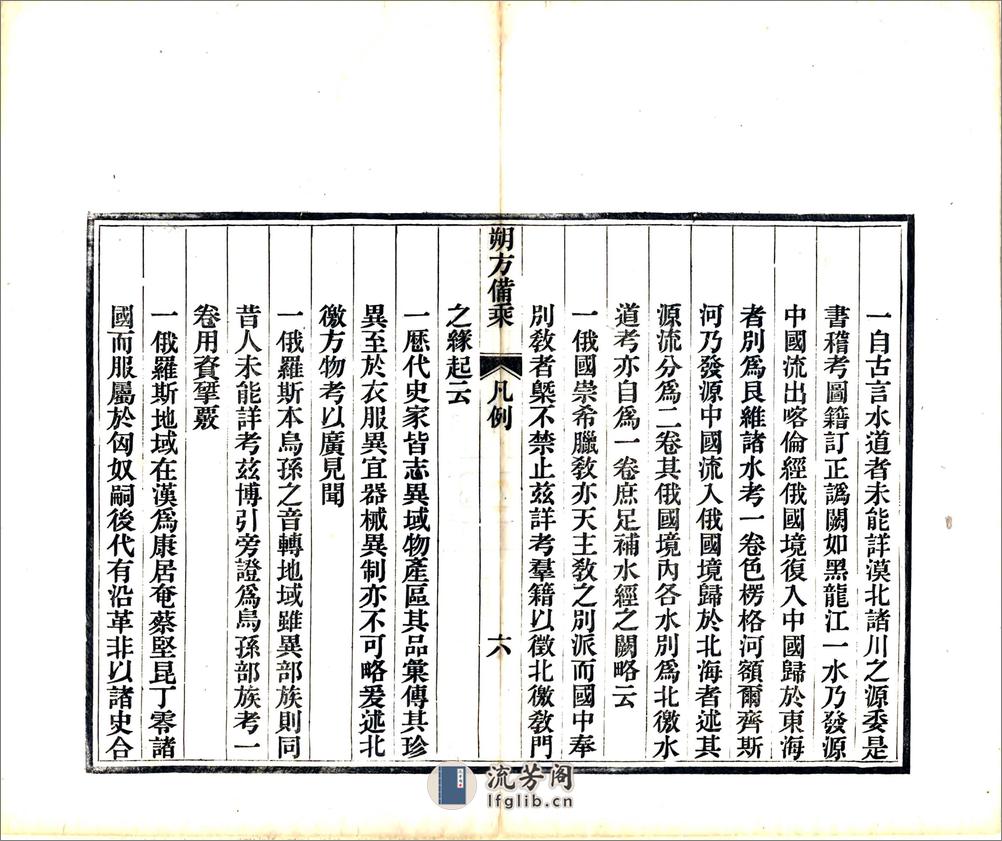 一自古言水道者未能詳漠北諸川之源委是
書稽考圖籍訂正譌闕如黑龍江一水乃發源
中國流出喀倫經俄國境復入中國歸於東海
者別爲艮維諸水考一卷色楞格河額爾齊斯
河乃發源中國流入俄國境歸於北海者述其
源流分爲二卷其俄國境內各水別爲北徼水
道考亦自爲一卷庶足補水經之闕略云
一俄國崇希臘敎亦天主敎之別派而國中奉
別敎者槩不禁止茲詳考羣籍以徵北徼敎門
朔方備乘
凡例
六
之緣起云
一歷代史家皆志異域物產區其品彙傳其珍
異至於衣服異宜器械異制亦不可略爰述北
徼方物考以廣見聞
一俄羅斯本烏孫之音轉地域雖異部族則同
昔人未能詳考茲博引旁證爲烏孫部族考一
卷用資揅覈
一俄羅斯地域在漢爲康居奄蔡堅昆丁零諸
國而服屬於匈奴嗣後代有沿革非以諸史合
流芳阁
lfglib.cn